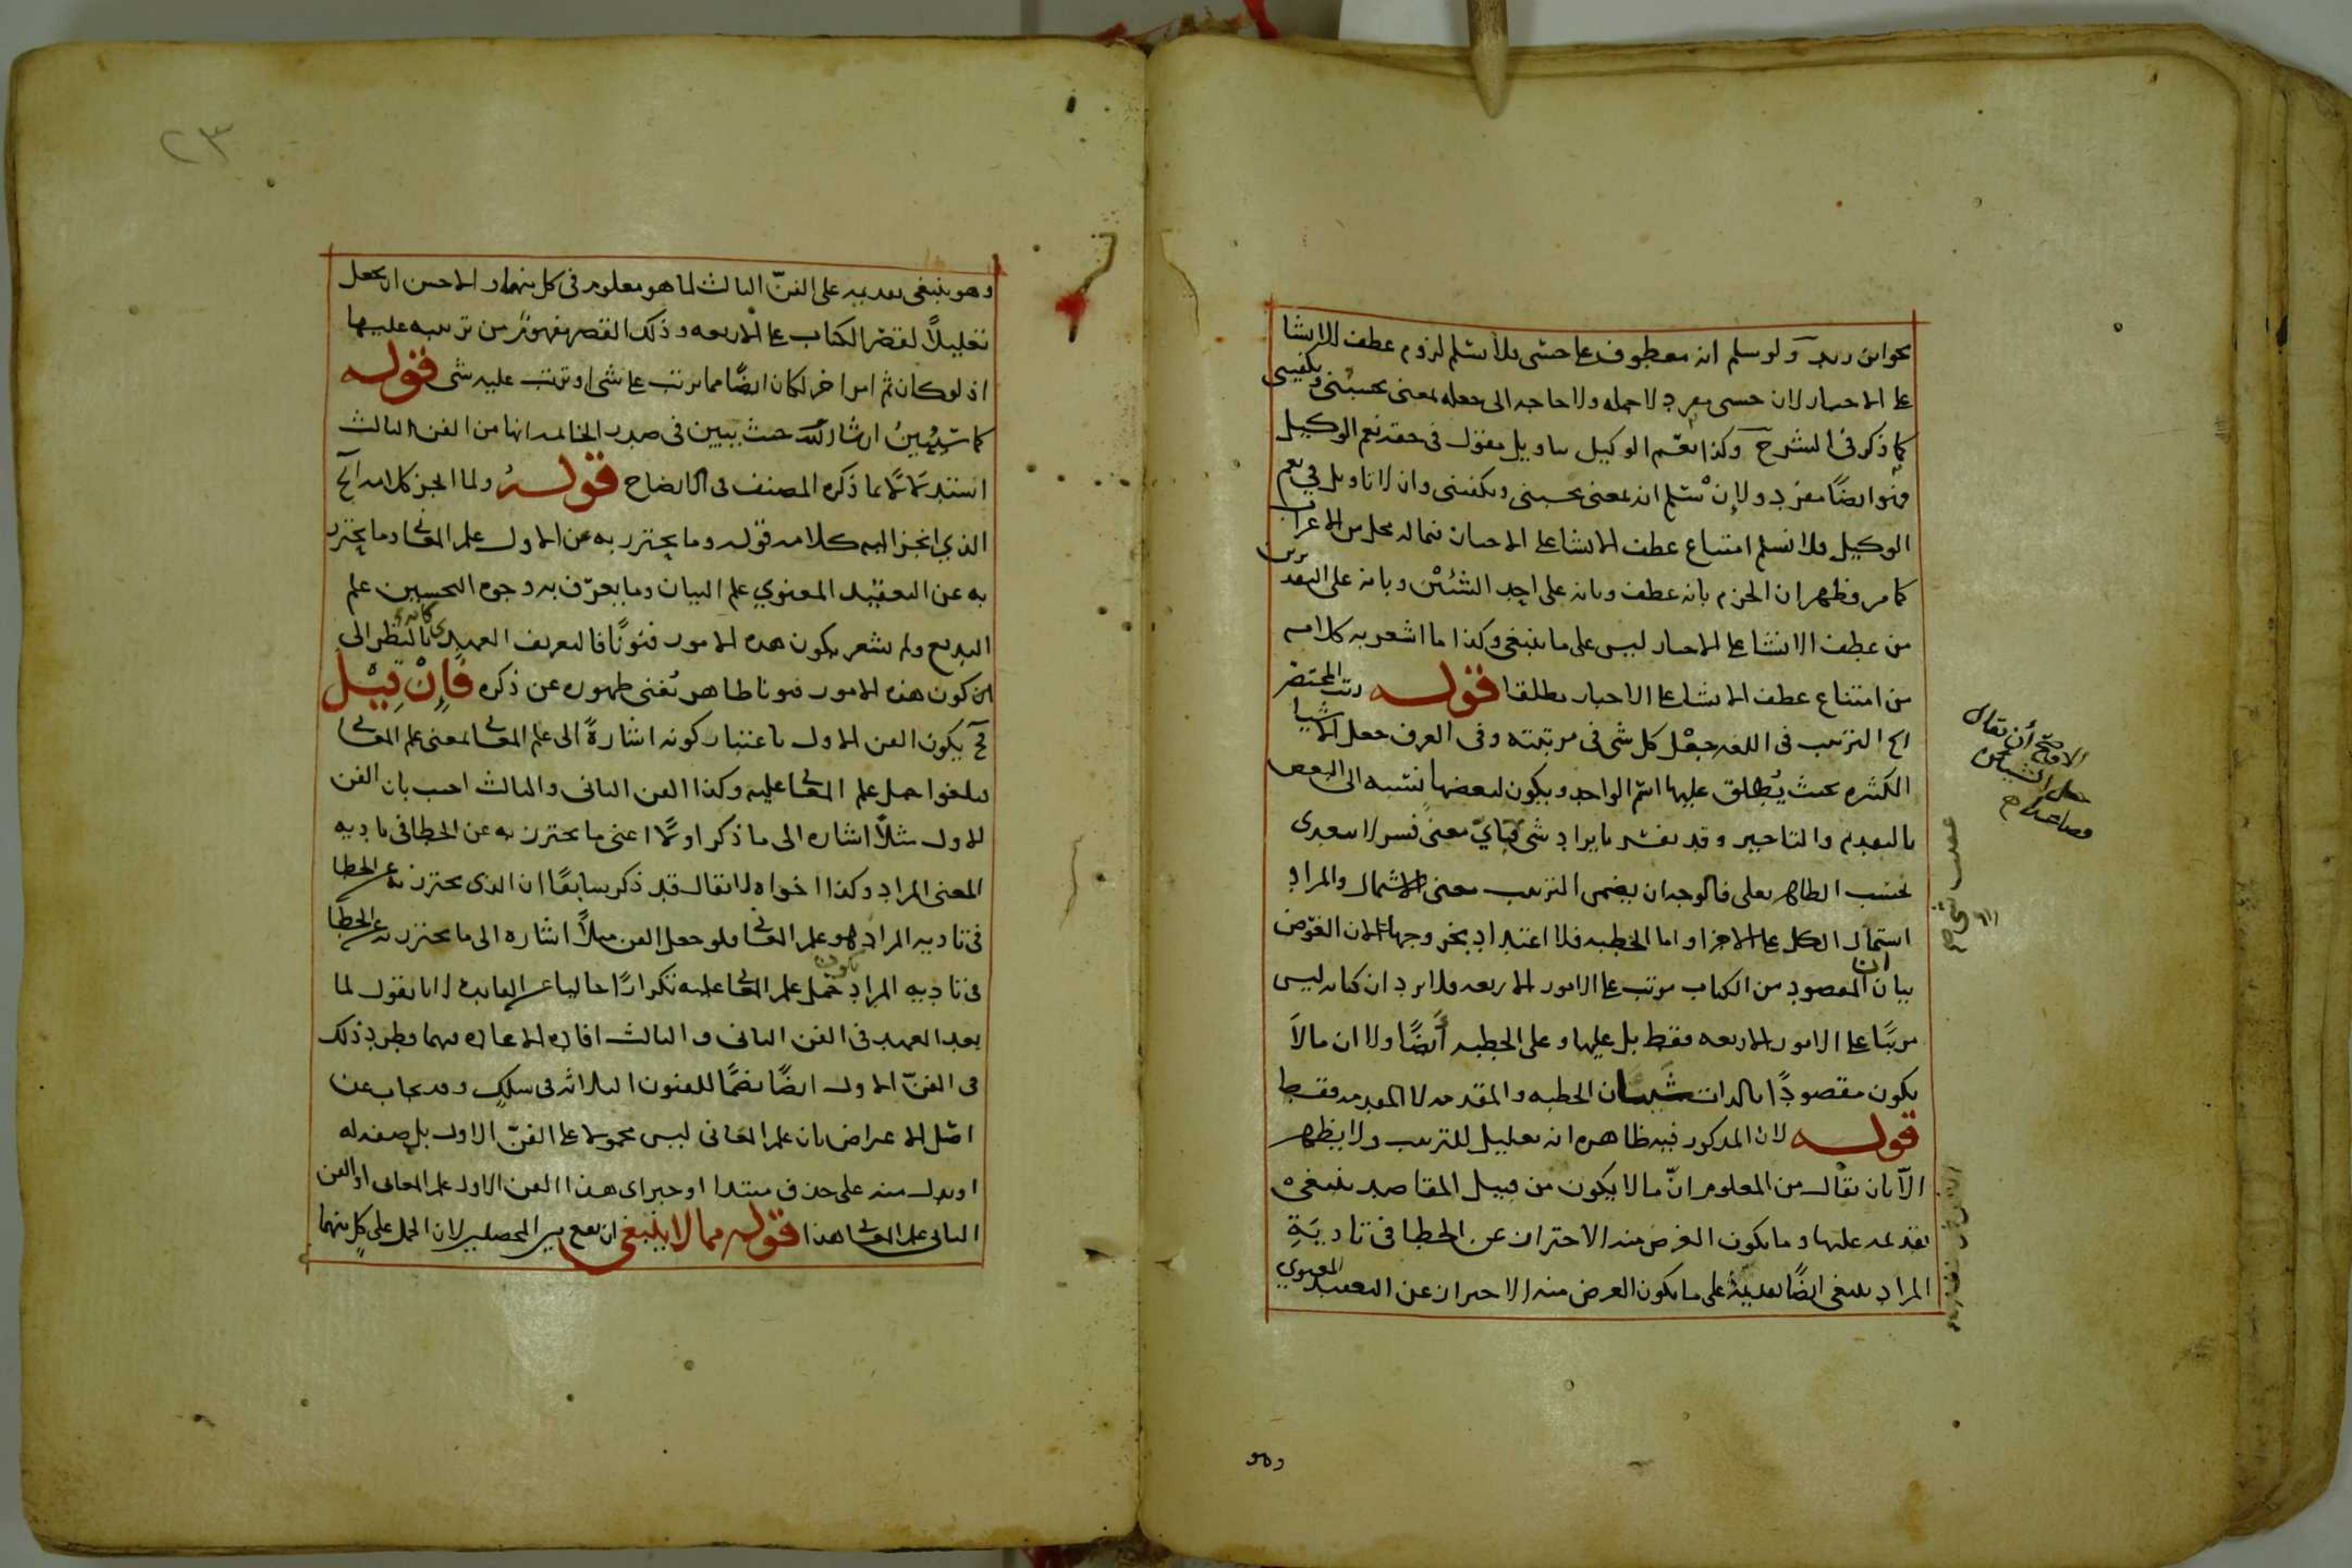 نحو اىن رىد ولو سلم انه معطوف على حسبى فلا نسلم لزوم عطف الانشا
على الاخبار لان حسبى مفرد لا جمله ولا حاجه الى جعله بمعنى يحسبنى ويكفينى
كما ذكر فى الشرح وكذا نعم الوكيل بتاويل مقول فى حقه نعم الوكيل
فهو ايضًا مفرد ولإن نسلم انه بمعنى يحسبنى ويكفينى وان لا تاويل فى نعم
الوكيل فلا نسلم امتناع عطف الانشا على الاخبار فيما له محل من الاعراب
كما مر فظهر ان الجزم بانه عطف وبانه على احد الشيئين وبانه على التقديرين
من عطف الانشا على الاخبار ليس على ما ينبغى وكذا ما اشعر به كلامه
من امتناع عطف الانشا على الاخبار مطلقا قوله رتب المختصر
الخ الترتيب فى اللغه جعل كل شى فى مرتبته وفى العرف جعل الاشيا
الكثيره بحيث يُطلق عليها اسم الواحد ويكون لبعضها نسبه الى البعض
بالتقديم والتاخير وقد يفسر بايراد شى فباىّ معنى فسر لا يتعدى
بحسب الظاهر بعلى فالوجه ان يضمن الترتيب معنى الاشتمال والمراد
اشتمال الكل على الاجزا واما الخطبه فلا اعتداد بخروجها لان الغرض
بيان ان المقصود من الكتاب مرتب على الامور الاربعه فلا يرد ان كتابه ليس
مرتبًا على الامور الاربعه فقط بل عليها وعلى الخطبه أيضًا ولا ان ما لا
يكون مقصودًا بالذات شيئان الخطبه والمقدمه لا المقدمه فقط
قوله لان المذكور فيه ظاهره انه تعليل للترتيب ولا يظهر
الّا بان يقال من المعلوم انّ ما لا يكون من قبيل المقاصد ينبغى
تقديمه عليها وما يكون الغرض منه الاحتراز عن الخطا فى تاديَةِ
المراد ينبغى ايضًا تقديمه على ما يكون الغرض منه الاحتراز عن التعقيد المعنوي
وهو
الاوضح أن يقال
٢٣
وهو ينبغى تقديمه على الفنّ الثالث لما هو معلوم فى كل منهما والاحسن ان يجعل
تعليلاً لقصر الكتاب على الاربعه وذلك القصر مفهوم من ترتيبه عليها
اذ لو كان ثم امر اخر لكان ايضًا مما يرتب على شى او ترتب عليه شى قوله
كما سنُبينُ ان شا الله حيث يبين فى صدر الخاتمه انها من الفن الثالث
استدلالًا بما ذكره المصنف فى الايضاح قوله ولما انجز كلامه الخ
الذي انجز اليه كلامه قوله وما يحترز به عن الاول علم المعانى وما يحترز
به عن التعقيد المعنوي علم البيان وما يعرّف به وجوه التحسين علم
البديع ولم يشعر بكون هذه الامور فنونًا فالتعريف العهدى كانه بالنظر الى
ان كون هذه الامور فنونا ظاهر يُغنى ظهوره عن ذكره فَإِنْ قِيْلَ
فح يكون الفن الاول باعتبار كونه اشارةً الى علم المعانى بمعنى علم المعانى
فيلغوا حمل علم المعانى عليه وكذا الفن الثانى والثالث اجيب بان الفن
الاول مثلاً اشاره الى ما ذكر اولًا اعنى ما يحترز به عن الخطا فى تاديه
المعنى المراد وكذا اخواه لا يقال قد ذكر سابقًا ان الذى يحترز به عن الخطا
فى تاديه المراد هو علم المعانى فلو جعل الفن مثلاً اشاره الى ما يحترز به عن الخطا
فى تاديه المراد يكون حمل علم المعانى عليه تكرارًا خاليا عن الفايده لانا نقول لما
بعد العهد فى الفن الثانى والثالث افاد الاعاده فيهما وطرد ذلك
فى الفنّ الاول ايضًا نضمًا للفنون الثلاثه فى سلك وقد يجاب عن
اصل الاعتراض بان علم المعانى ليس محمولا على الفنّ الاول بل صفه له
او بدل منه على حذف مبتدا او خبر اى هذا الفن الاول علم المعانى او الفن
الثانى علم المعانى هذا قوله مما لا ينبغى ان يقع بين المحصلين لان الحمل على كل منهما